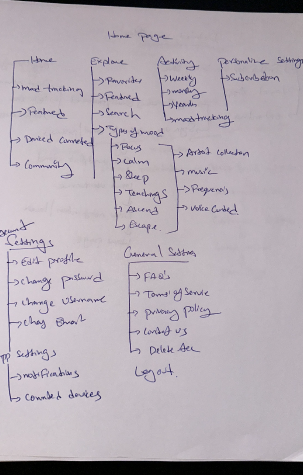 Home page
Home
→ mood-tracking
→ Featured
→ Device Connected
→ Community
Explore
→ Favorites
→ Featured
→ Search
→ Types of mood
→ Focus
→ Calm
→ Sleep
→ Teachings
→ Ascend
→ Escape
→ Artist collection
→ music
→ Frequency's
→ Voice Guided
Activity
→ Weekly
→ monthly
→ Year
→ moodtracking
Personalize Settings
→ Subscription
Settings
→ Edit profile
→ change password
→ change Username
→ chag Email
pp settings
→ notifications
→ Connected devices
General Setting
→ FAQ's
→ Terms of Service
→ privacy policy
→ contact us
→ Delete Acc
Logout.